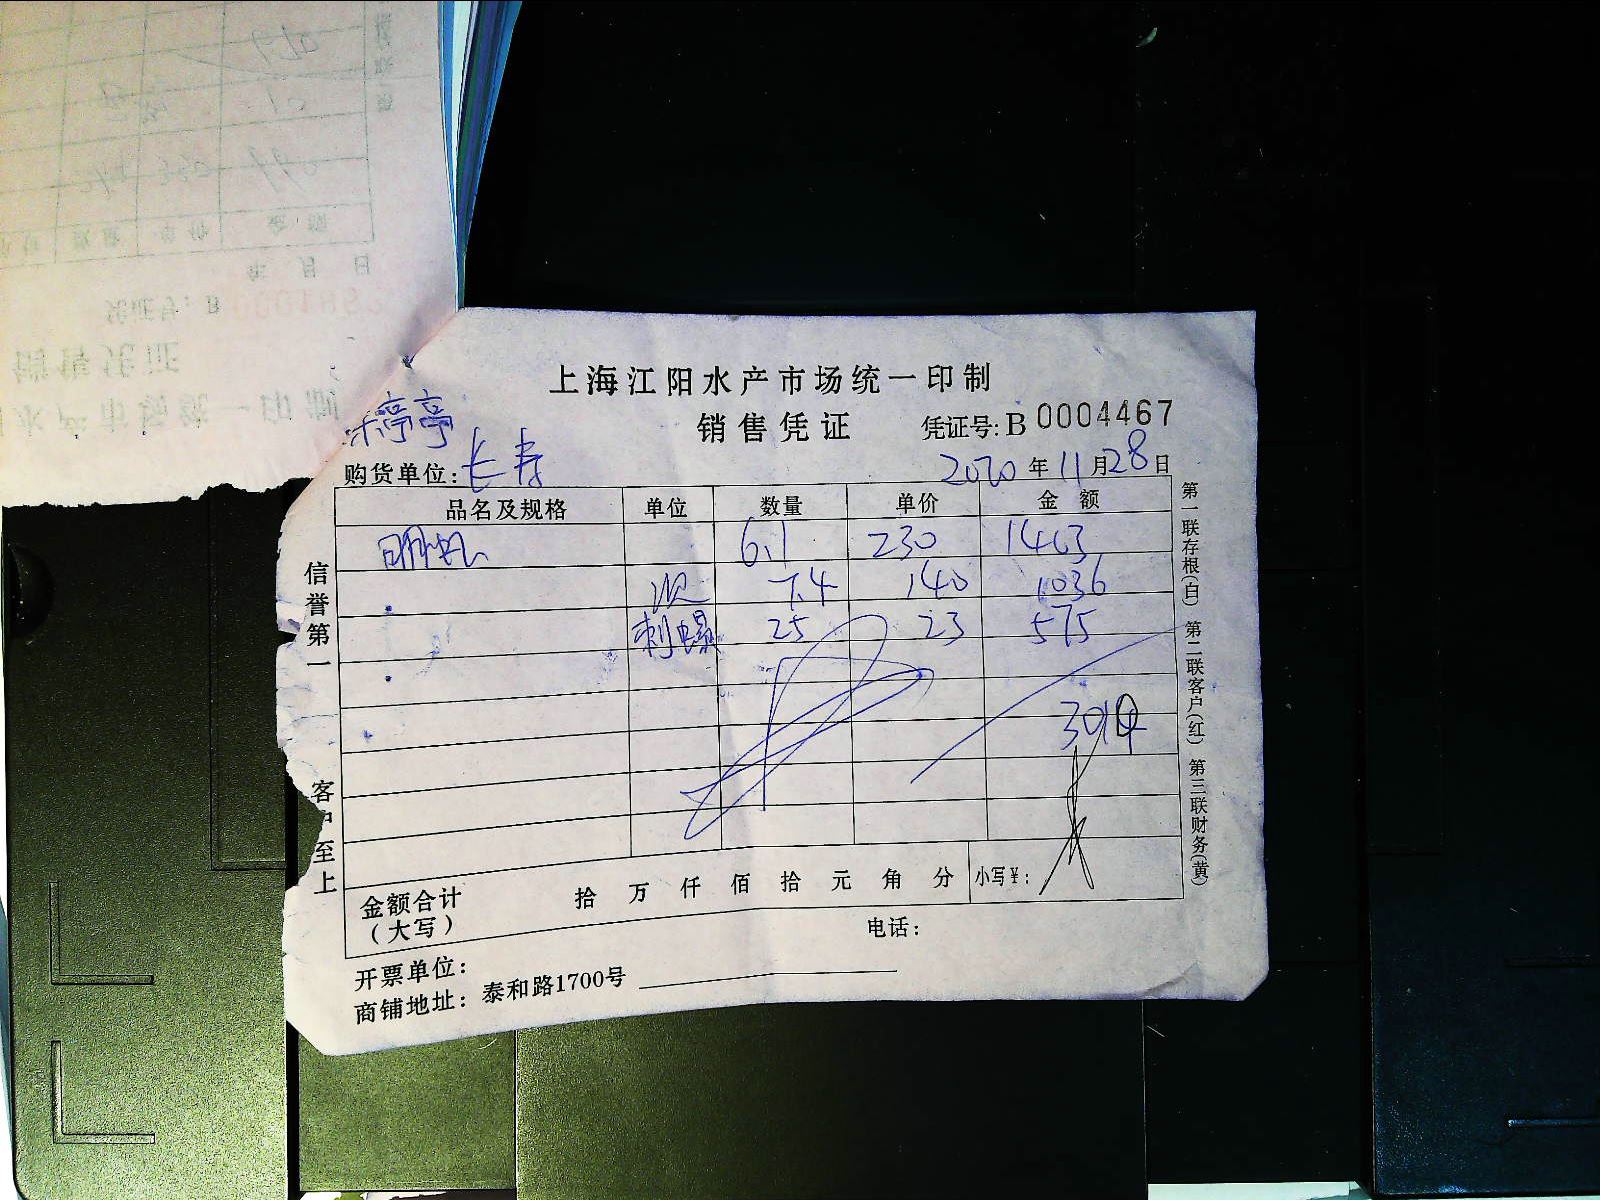 上海江阳水产市场统一印制
销售凭证 凭证号:B 0004467
亭亭
购货单位:长寿 2020年11月28日
品名及规格 单位 数量 单价 金额
明虾 6.1 230 1403
次 7.4 140 1036
刺螺 25 23 575
3014
金额合计(大写) 拾万仟佰拾元角分 小写¥:
开票单位: 电话:
商铺地址:泰和路1700号
信誉第一 客户至上
第一联存根(白) 第二联客户(红) 第三联财务(黄)